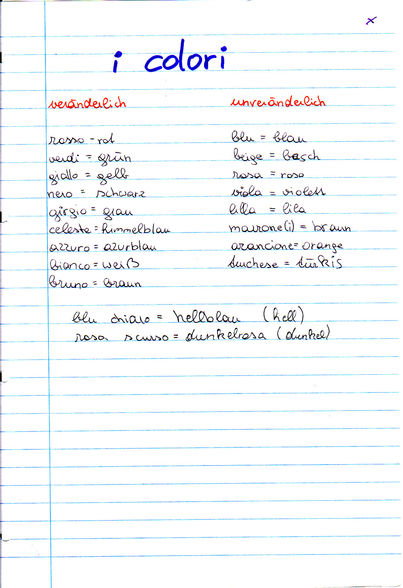 x
i colori
veränderlich
unveränderlich
rosso - rot
verdi = grün
giallo = gelb
nero = schwarz
girgio = grau
celeste = himmelblau
azzuro = azurblau
bianco = weiß
bruno = braun
blu = blau
beige = beasch
rosa = rosa
viola = violett
lilla = lila
marrone(i) = braun
arancione = orange
turchese = türkis
blu chiaro = hellblau (hell)
rosa scurso = dunkelrosa (dunkel)